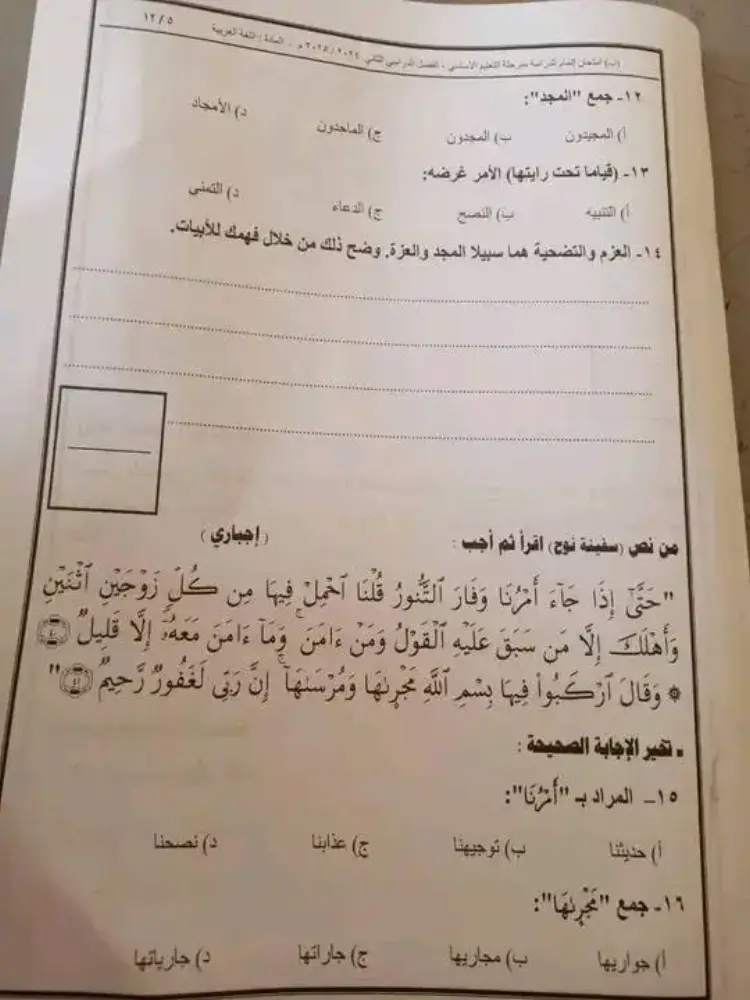 (ب) امتحان إتمام الدراسة بمرحلة التعليم الأساسي - الفصل الدراسي الثاني ٢٠٢٤ / ٢٠٢٥ م - المادة : اللغة العربية ١٢/٥
١٢- جمع "المجد":
أ) المجيدون ب) المجدون ج) الماجدون د) الأمجاد
١٣- (قياما تحت رايتها) الأمر غرضه:
أ) التنبيه ب) النصح ج) الدعاء د) التمنى
١٤- العزم والتضحية هما سبيلا المجد والعزة. وضح ذلك من خلال فهمك للأبيات.
من نص (سفينة نوح) اقرأ ثم أجب : (إجباري)
"حَتَّىٰٓ إِذَا جَآءَ أَمْرُنَا وَفَارَ ٱلتَّنُّورُ قُلْنَا ٱحْمِلْ فِيهَا مِن كُلٍّ زَوْجَيْنِ ٱثْنَيْنِ
وَأَهْلَكَ إِلَّا مَن سَبَقَ عَلَيْهِ ٱلْقَوْلُ وَمَنْ ءَامَنَ ۚ وَمَآ ءَامَنَ مَعَهُۥٓ إِلَّا قَلِيلٌ ٤٠
۞ وَقَالَ ٱرْكَبُوا۟ فِيهَا بِسْمِ ٱللَّهِ مَجْر۪ىٰهَا وَمُرْسَىٰهَآ ۚ إِنَّ رَبِّى لَغَفُورٌ رَّحِيمٌ ٤١"
▪ تخير الإجابة الصحيحة :
١٥- المراد بـ "أَمْرُنَا":
أ) حديثنا ب) توجيهنا ج) عذابنا د) نصحنا
١٦- جمع "مَجْر۪ىٰهَا":
أ) جواريها ب) مجاريها ج) جاراتها د) جارياتها